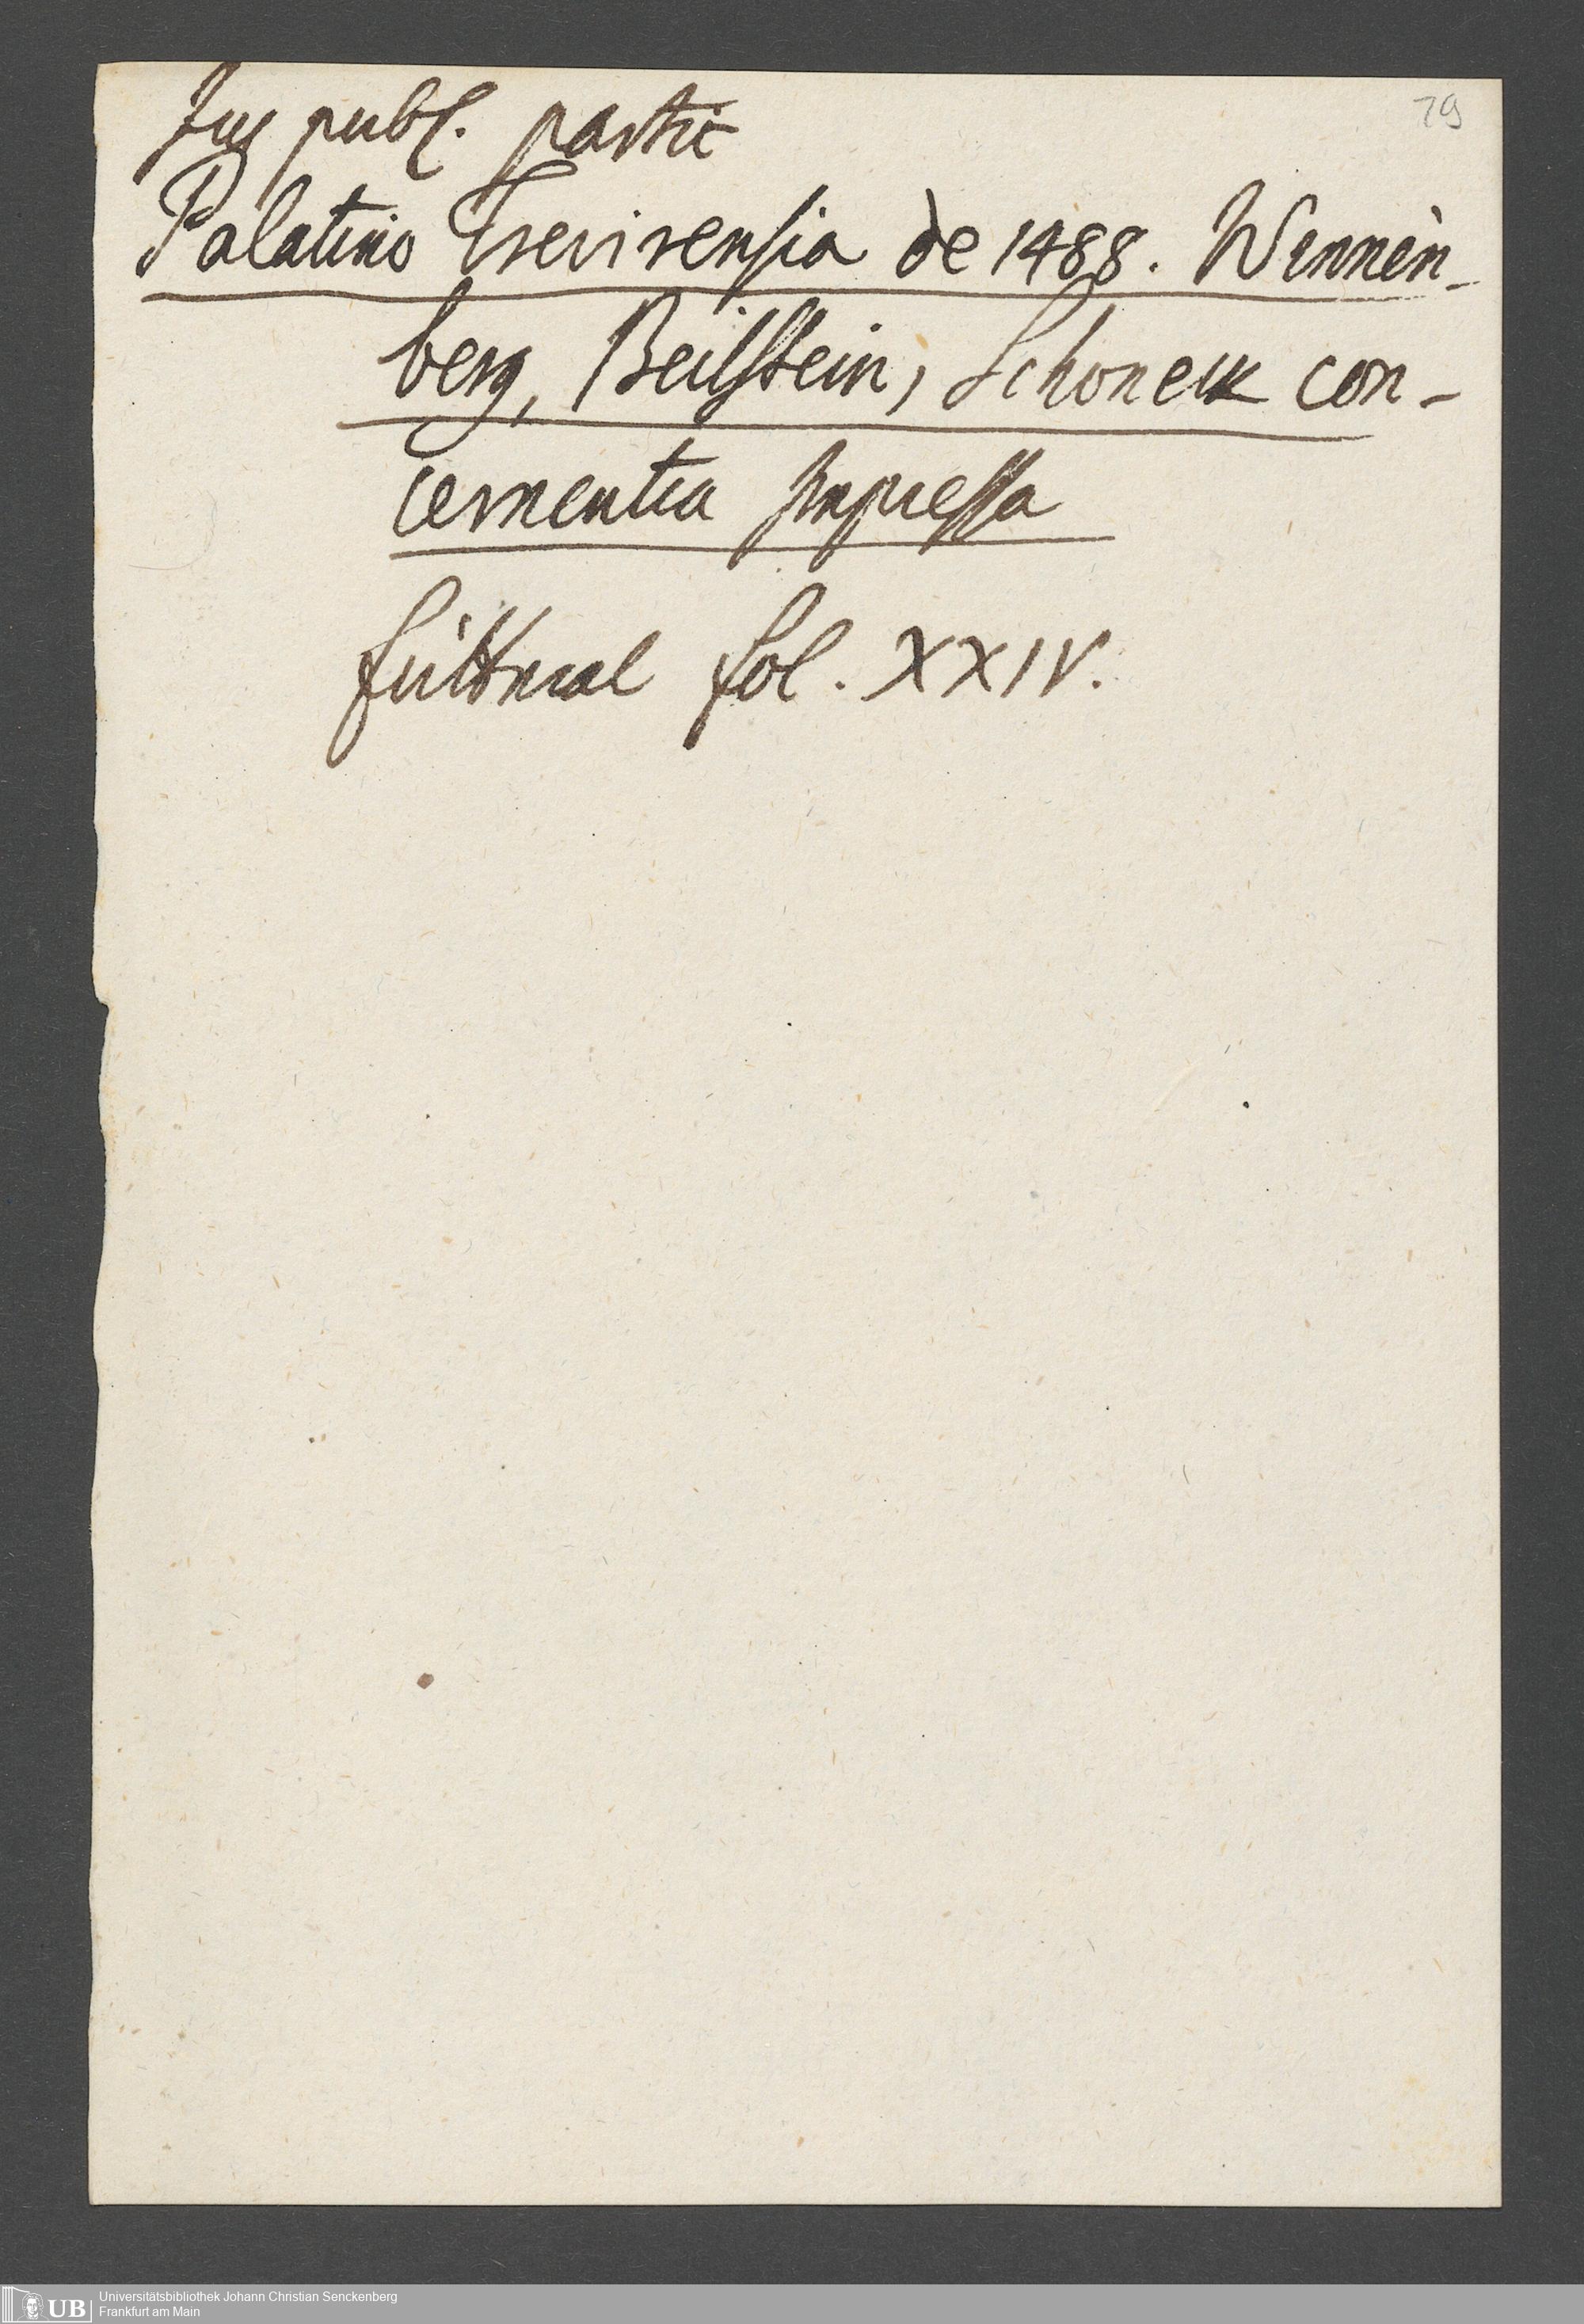 79
Jus publ. partic
Palatino Trevirensia de 1488. Winnen-
berg, Beilstein, Schoneck con-
cernentia Impressa
fol. XXIV.
UB Universitätsbibliothek Johann Christian Senckenberg
Frankfurt am Main